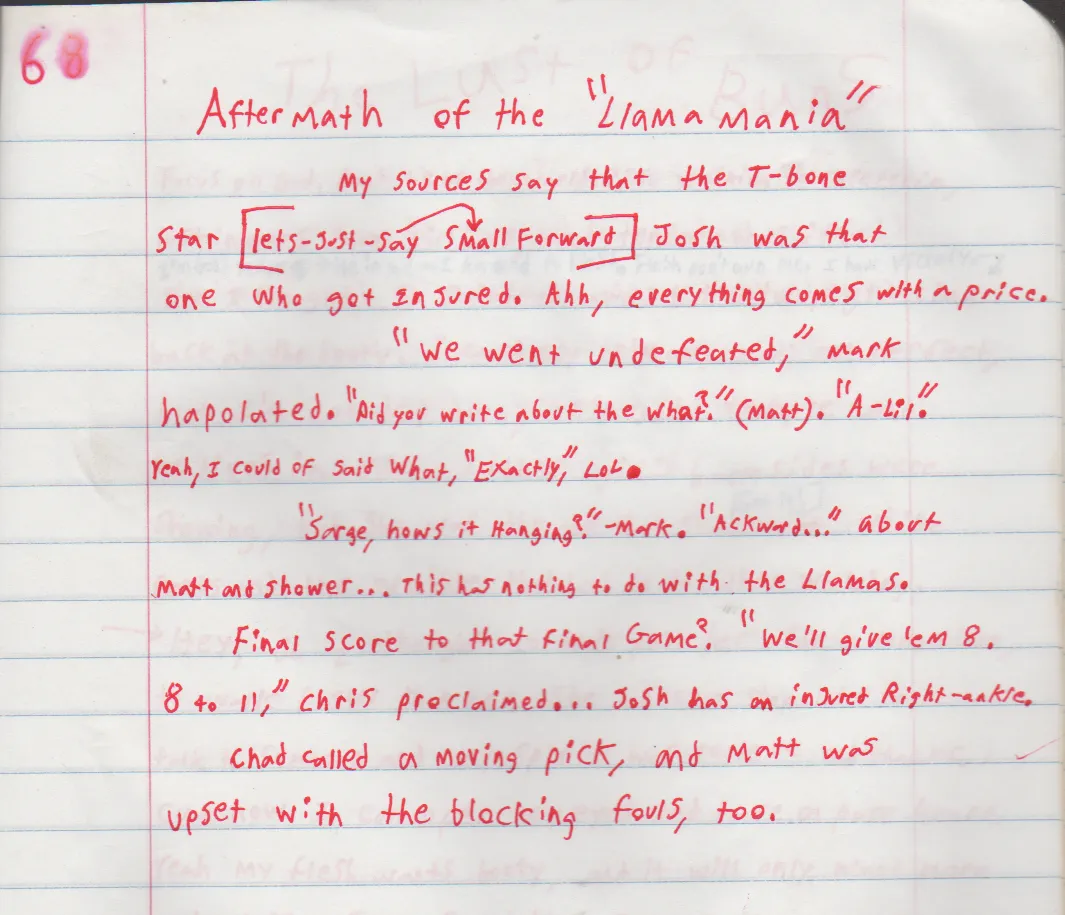 68
Aftermath of the "Llamamania"
My sources say that the T-bone
Star [lets-Just-say Small Forward] Josh was that
one who got inJured. Ahh, everything comes with a price.
"We went undefeated," Mark
hapolated. "Did you write about the what?" (Matt). "A-Lil."
Yeah, I could of said what, "Exactly," LoL.
"Sarge, hows it Hanging?"-Mark. "Ackward..." about
Matt and shower... This has nothing to do with the Llamas.
Final score to that final Game? "We'll give 'em 8.
8 to 11," Chris proclaimed... Josh has an inJured Right-ankle.
Chad called a moving pick, and Matt was
upset with the blocking fouls, too.